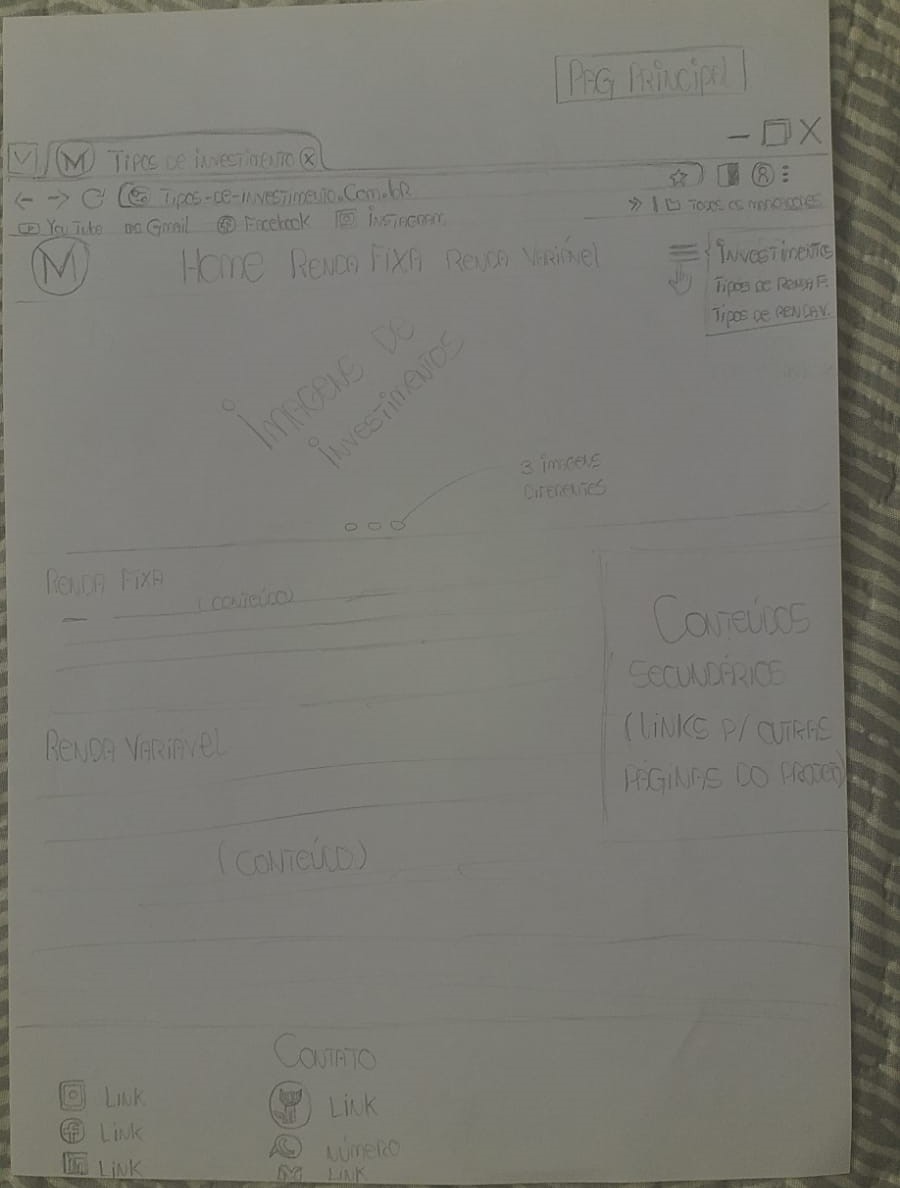 PAG PRINCIPAL
M TIPOS DE INVESTIMENTO X
TIPOS-DE-INVESTIMENTO.COM.BR
YouTube Gmail Facebook INSTAGRAM
» TODOS OS MARCADORES
M HOME RENDA FIXA RENDA VARIÁVEL
INVESTIMENTOS
TIPOS DE RENDA F.
TIPOS DE RENDA V.
IMAGENS DE
INVESTIMENTOS
3 IMAGENS
DIFERENTES
RENDA FIXA
(CONTEÚDO)
RENDA VARIÁVEL
(CONTEÚDO)
CONTEÚDOS
SECUNDÁRIOS
(LINKS P/ OUTRAS
PÁGINAS DO PROJETO)
CONTATO
LINK
LINK
LINK
LINK
NÚMERO
LINK